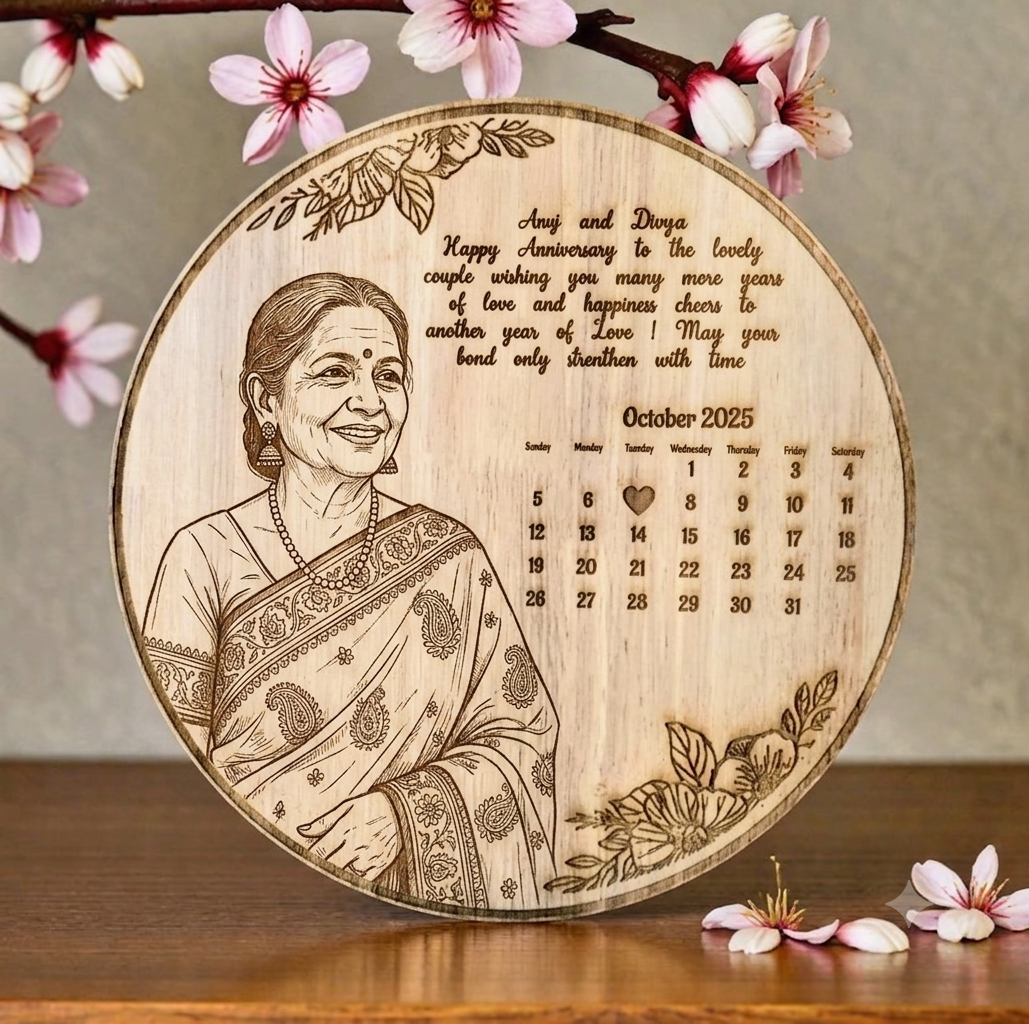 Anuj and Divya
Happy Anniversary to the lovely
couple wishing you many more years
of love and happiness cheers to
another year of Love ! May your
bond only strenthen with time
October 2025
Sunday Monday Tuesday Wednesday Thursday Friday Saturday
1 2 3 4
5 6 8 9 10 11
12 13 14 15 16 17 18
19 20 21 22 23 24 25
26 27 28 29 30 31